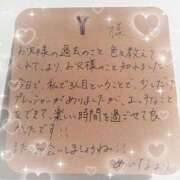 Y 様
お兄様の過去のこと 色々教えて
くれて、より、お兄様のこと知れました
今日で、私で3人目ということで、少しだけ
プレッシャーがありましたが、エッチなこと
をできて、楽しい時間を過ごせて良
かったです!!
また 会いしましょうね!!